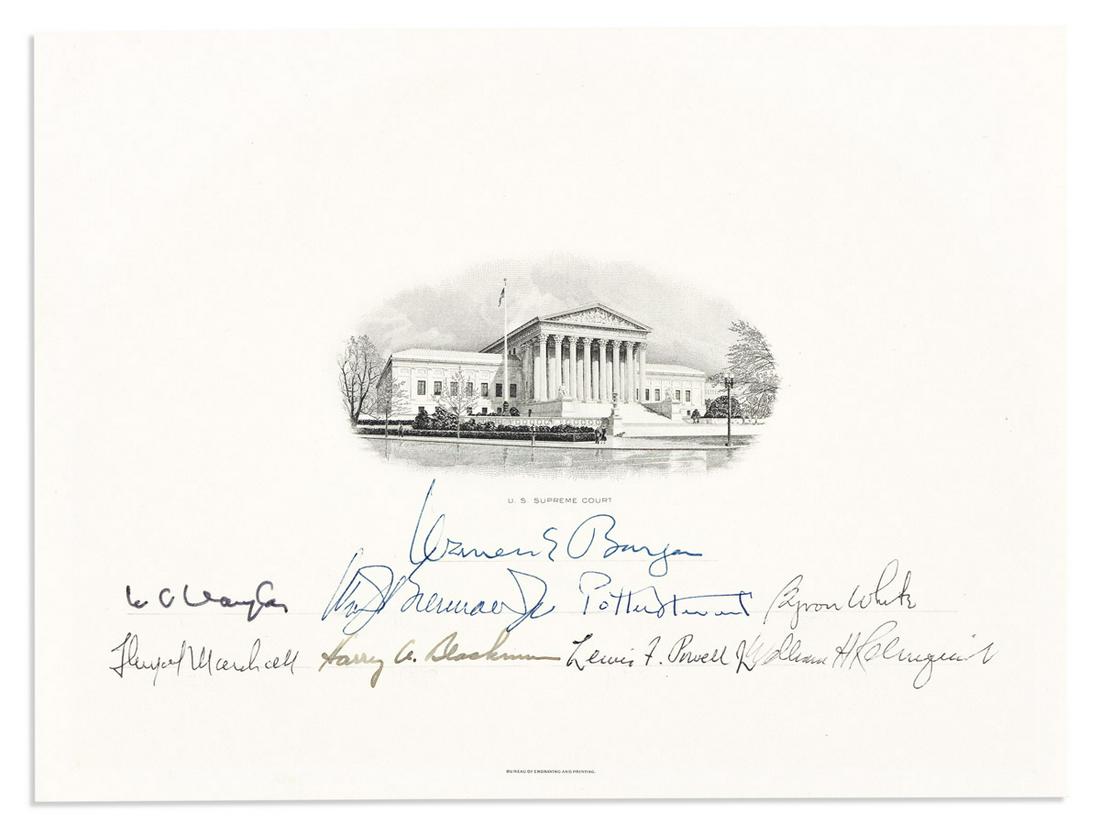 U. S. SUPREME COURT
Warren E Burger
W O Douglas Wm J Brennan Jr Potter Stewart Byron White
Thurgood Marshall Harry A. Blackmun Lewis F. Powell Jr William H Rehnquist
BUREAU OF ENGRAVING AND PRINTING.